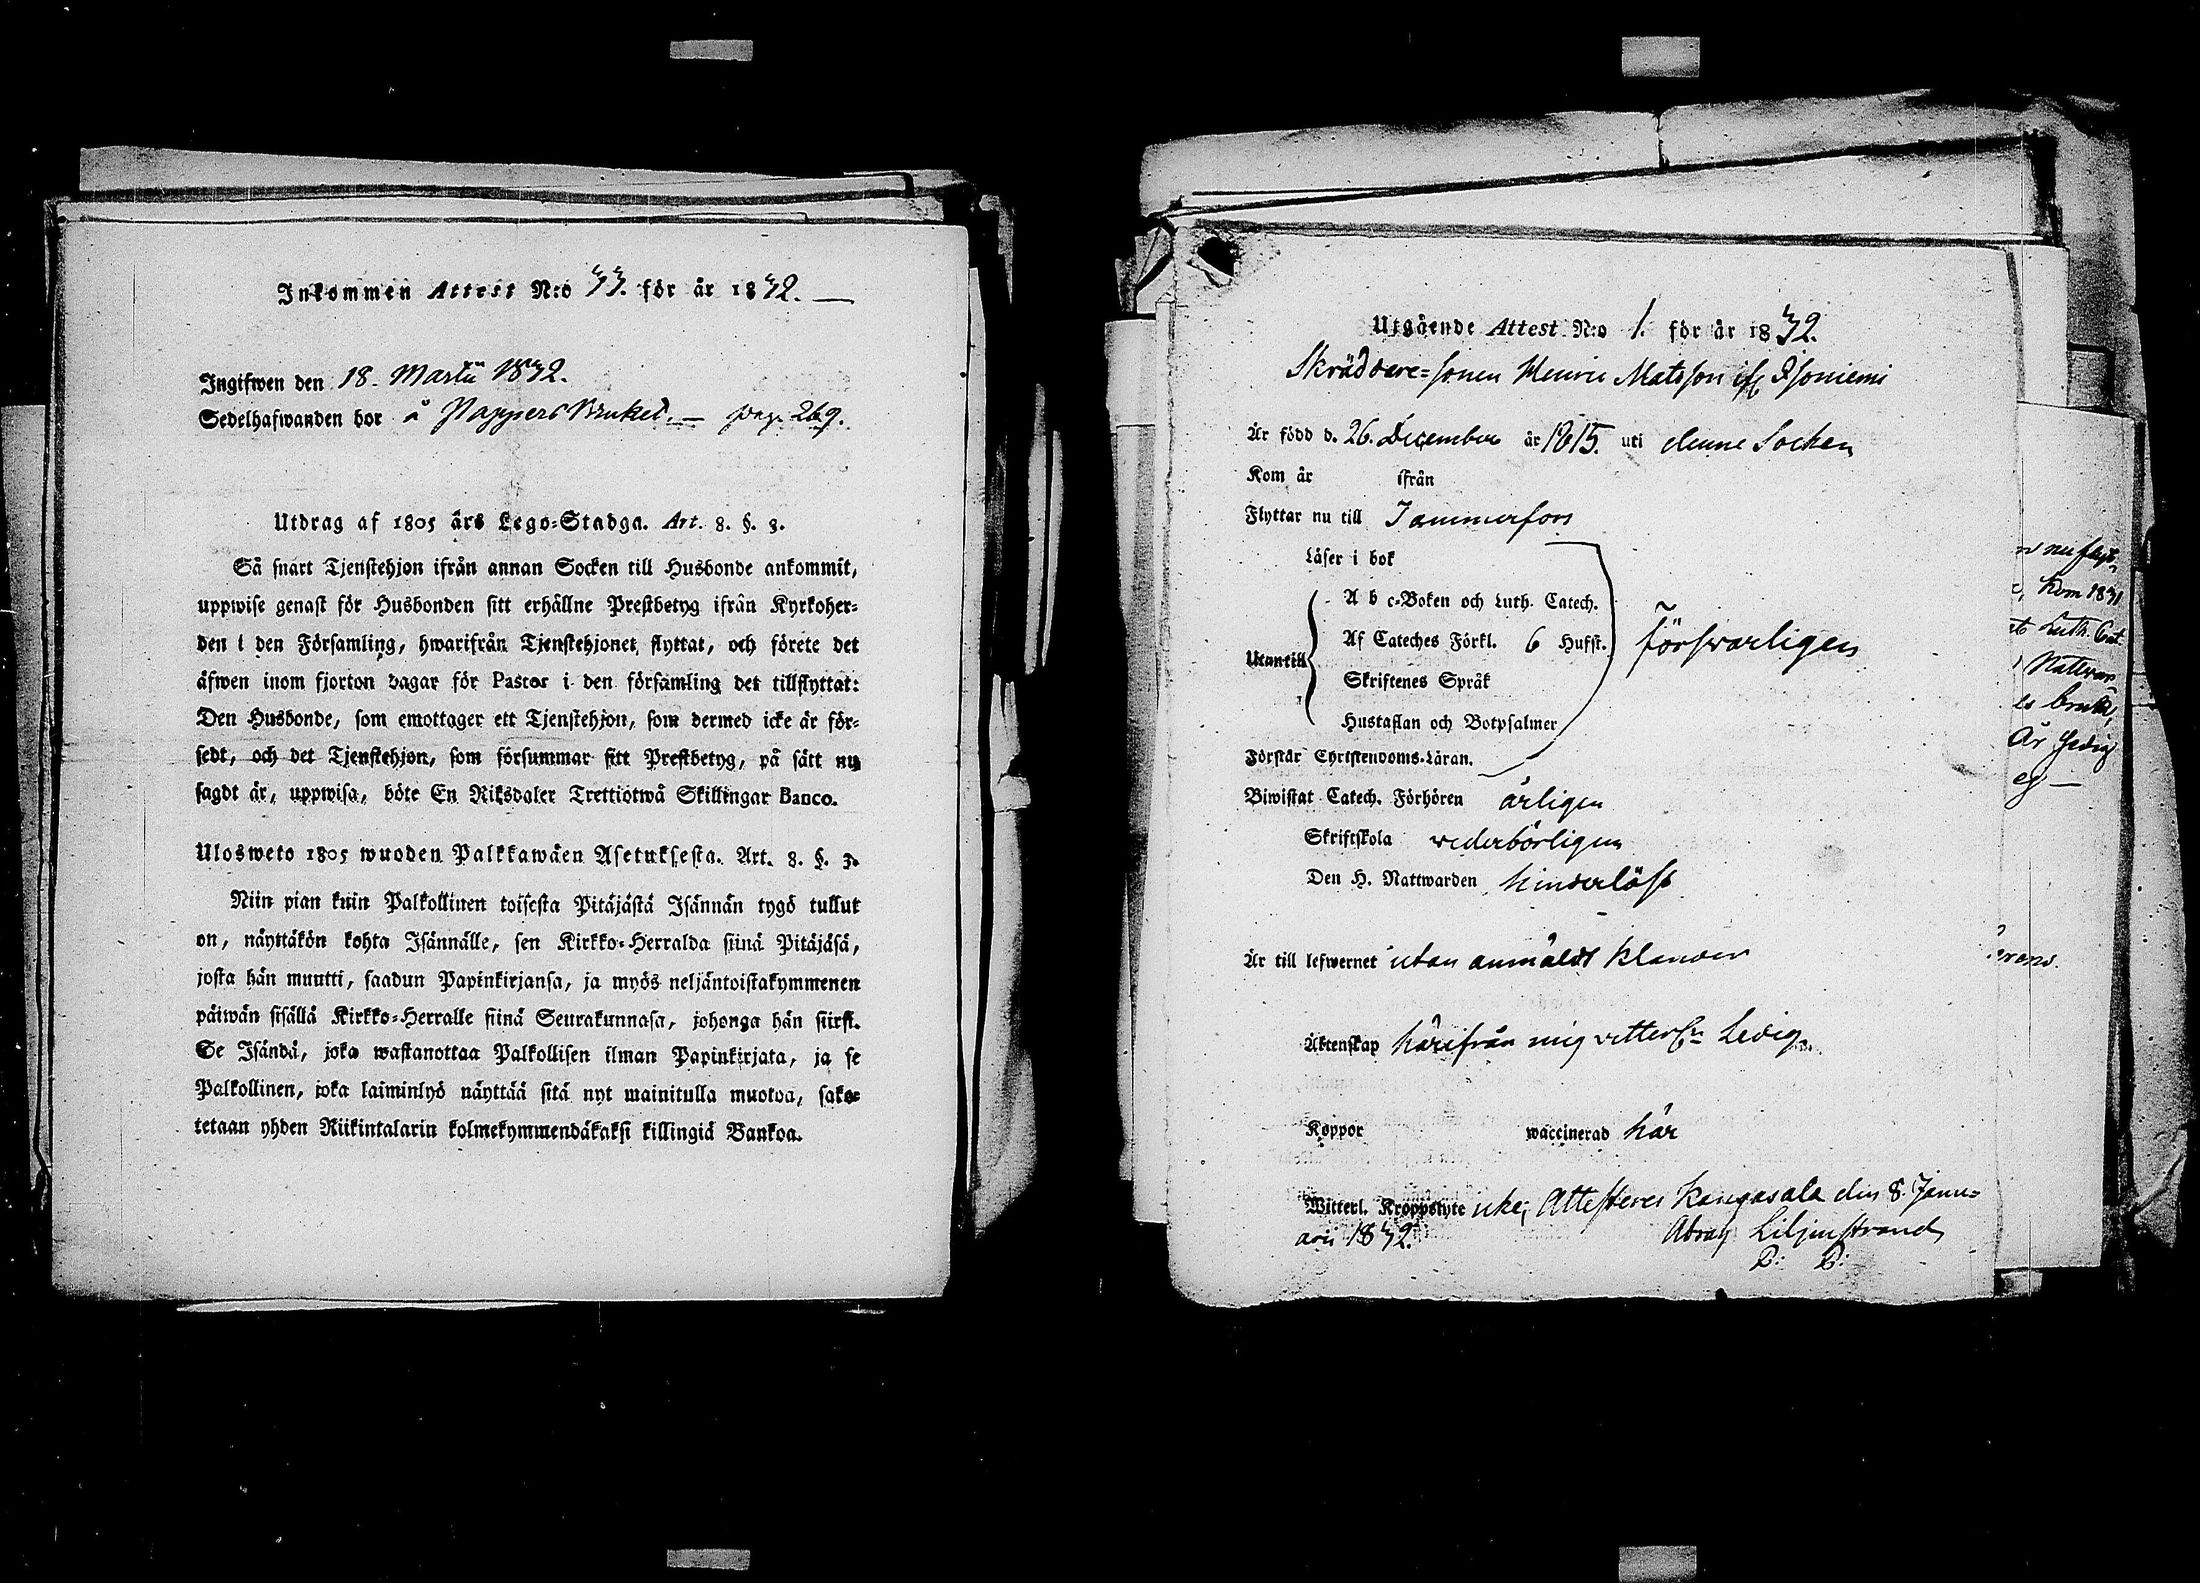 Inkommen Attest N:o 33. för år 1832. —
Ingifwen den 18. Martii 1832.
Sedelhafwanden bor å Pappers Bruket. — pag. 269.
Utdrag af 1805 års Lego-Stadga. Art. 8. §. 3.
Så snart Tjenstehjon ifrån annan Socken till Husbonde ankommit,
uppwise genast för Husbonden sitt erhållne Prestbetyg ifrån Kyrkoher-
den i den Församling, hwarifrån Tjenstehjonet flyttat, och förete det
äfwen inom fjorton dagar för Pastor i den församling det tillflyttat:
Den Husbonde, som emottager ett Tjenstehjon, som dermed icke är för-
sedt, och det Tjenstehjon, som försummar sitt Prestbetyg, på sätt nu
sagdt är, uppwisa, böte En Riksdaler Trettiotwå Skillingar Banco.
Ulosweto 1805 wuoden Palkkawäen Asetuksesta. Art. 8. §. 3.
Niin pian kuin Palkollinen toisesta Pitäjästä Isännän tygö tullut
on, näyttäkön kohta Isännälle, sen Kirkko-Herralda siinä Pitäjäsä,
josta hän muutti, saadun Papinkirjansa, ja myös neljäntoistakymmenen
päiwän sisällä Kirkko-Herralle siinä Seurakunnasa, johonga hän siirsi.
Se Isändä, joka wastanottaa Palkollisen ilman Papinkirjata, ja se
Palkollinen, joka laiminlyö näyttää sitä nyt mainitulla muotoa, sako-
tetaan yhden Riikintalarin kolmekymmendäkaksi killingiä Bankoa.
Utgående Attest N:o 1. för år 1832.
Skräddare-sonen Henric Matsson ifr Isoniemi
Är född d. 26. December år 1815. uti denne Socken
Kom år ifrån
Flyttar nu till Tammerfors
Läser i bok
A b c-Boken och Luth. Catech.
Af Cateches Förkl. 6 Hufst.
Utantill försvarligen
Skriftenes Språk
Hustaflan och Botpsalmer
Förstår Christendoms-Läran.
Biwistat Catech. Förhören årligen
Skriftskola vederbörligen
Den H. Nattwarden hinderlöst
Är till lefwernet utan anmäldt klander
Äktenskap härifrån mig vetterl:n Ledig.
Koppor waccinerad här
Witterl. Kroppslyte icke; Attesterer Kangasala den 8. Janu-
arii 1832. Abrah Liljenstrand
P: P:
nu flyt-
Kom 1831
Luth. Cat.
Nattvar
Är Ledig